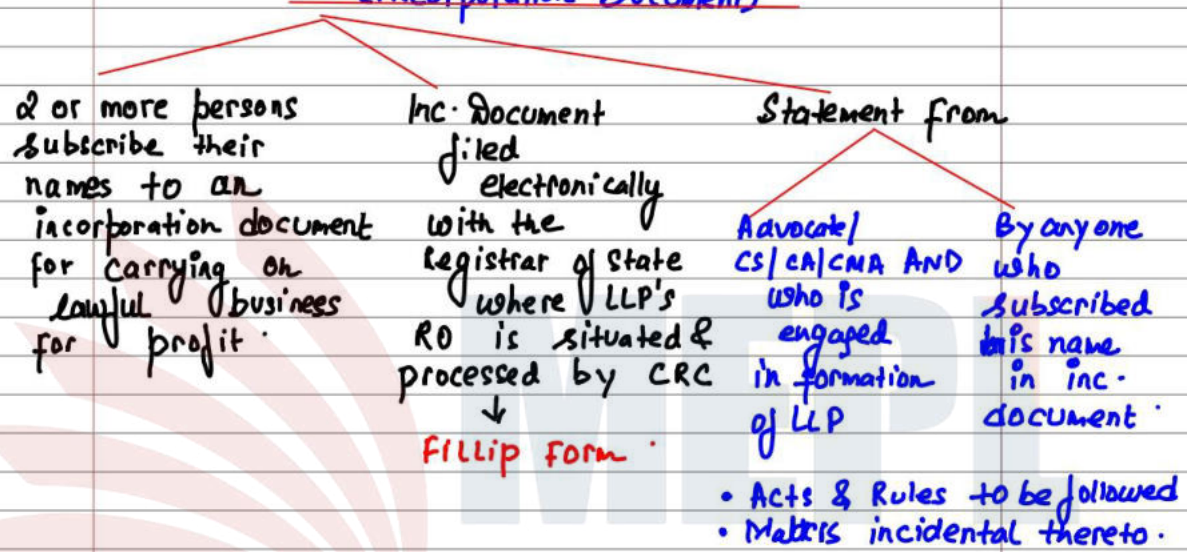 Incorporation Documents
2 or more persons
subscribe their
names to an
incorporation document
for carrying on
lawful business
for profit.
Inc. Document
filed
electronically
with the
Registrar of State
where LLP's
RO is situated &
processed by CRC
↓
FILLip Form.
Statement From
Advocate/
CS/CA/CMA AND
who is
engaged
in formation
of LLP
By anyone
who
subscribed
his name
in inc.
document.
• Acts & Rules to be followed
• Matters incidental thereto.
MEPL